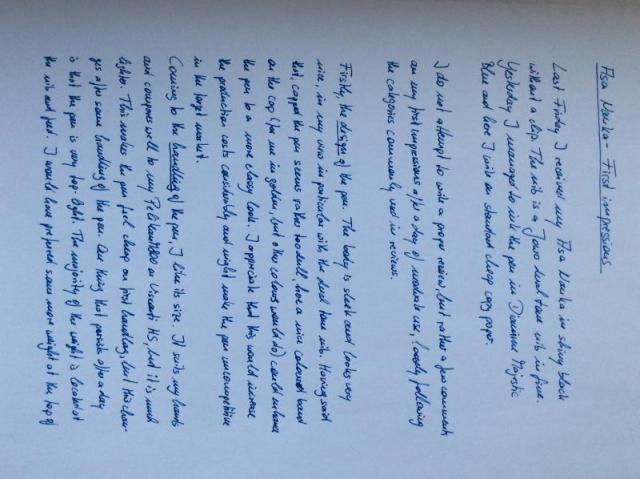 Asa Nauka - First impressions
Last Friday I received my Asa Nauka in shiny black
without a clip. The nib is a Jowo dual tone nib in fine.
Yesterday I managed to ink the pen in Diamine Majestic
Blue and here I write on standard cheap copy paper.
I do not attempt to write a proper review, but rather a few comments
on my first impressions after a day of moderate use, loosely following
the categories commonly used in reviews.
Firstly, the design of the pen. The body is sleek and looks very
nice, in my view in particular with the dual tone nib. Having said
that, capped the pen seems rather too dull, here a nice coloured band
on the cap (for me in golden, but other colours would do) could enhance
the pen to a more classy look. I appreciate that this would increase
the production costs considerably and might make the pen uncompetitive
in the target market.
Coming to the handling of the pen, I like its size. It suits my hands
and compares well to my Pelikan M800 or Visconti HS, but it is much
lighter. This makes the pen feel cheap on first handling, but this chan-
ges after some handling of the pen. One thing that persists after a day
is that the pen is very top light. The majority of the weight is located at
the nib and feed. I would have preferred some more weight at the top of